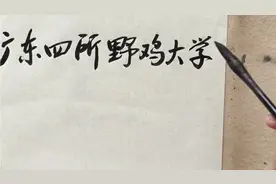 广东四所野鸡大学